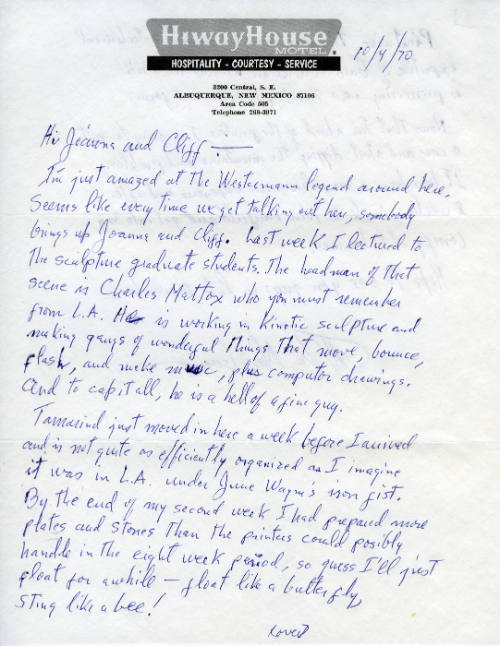 HiwayHouse
MOTEL
HOSPITALITY - COURTESY - SERVICE
3200 Central, S. E.
ALBUQUERQUE, NEW MEXICO 87106
Area Code 505
Telephone 268-3971
10/4/70
Hi Joanna and Cliff —
I'm just amazed at the Westermann legend around here.
Seems like every time we get talking out here, somebody
brings up Joanna and Cliff. Last week I lectured to
the sculpture graduate students. The headman of that
scene is Charles Mattox who you must remember
from L.A. He is working in Kinetic sculpture and
making gangs of wonderful things that move, bounce,
flash, and make music, plus computor drawings.
And to cap it all, he is a hell of a fine guy.
Tamarind just moved in here a week before I arrived
and is not quite as efficiently organized as I imagine
it was in L.A. under June Wayne's iron fist.
By the end of my second week I had prepared more
plates and stones than the printers could posibly
handle in the eight week period, so guess I'll just
float for awhile — float like a butterfly,
sting like a bee!